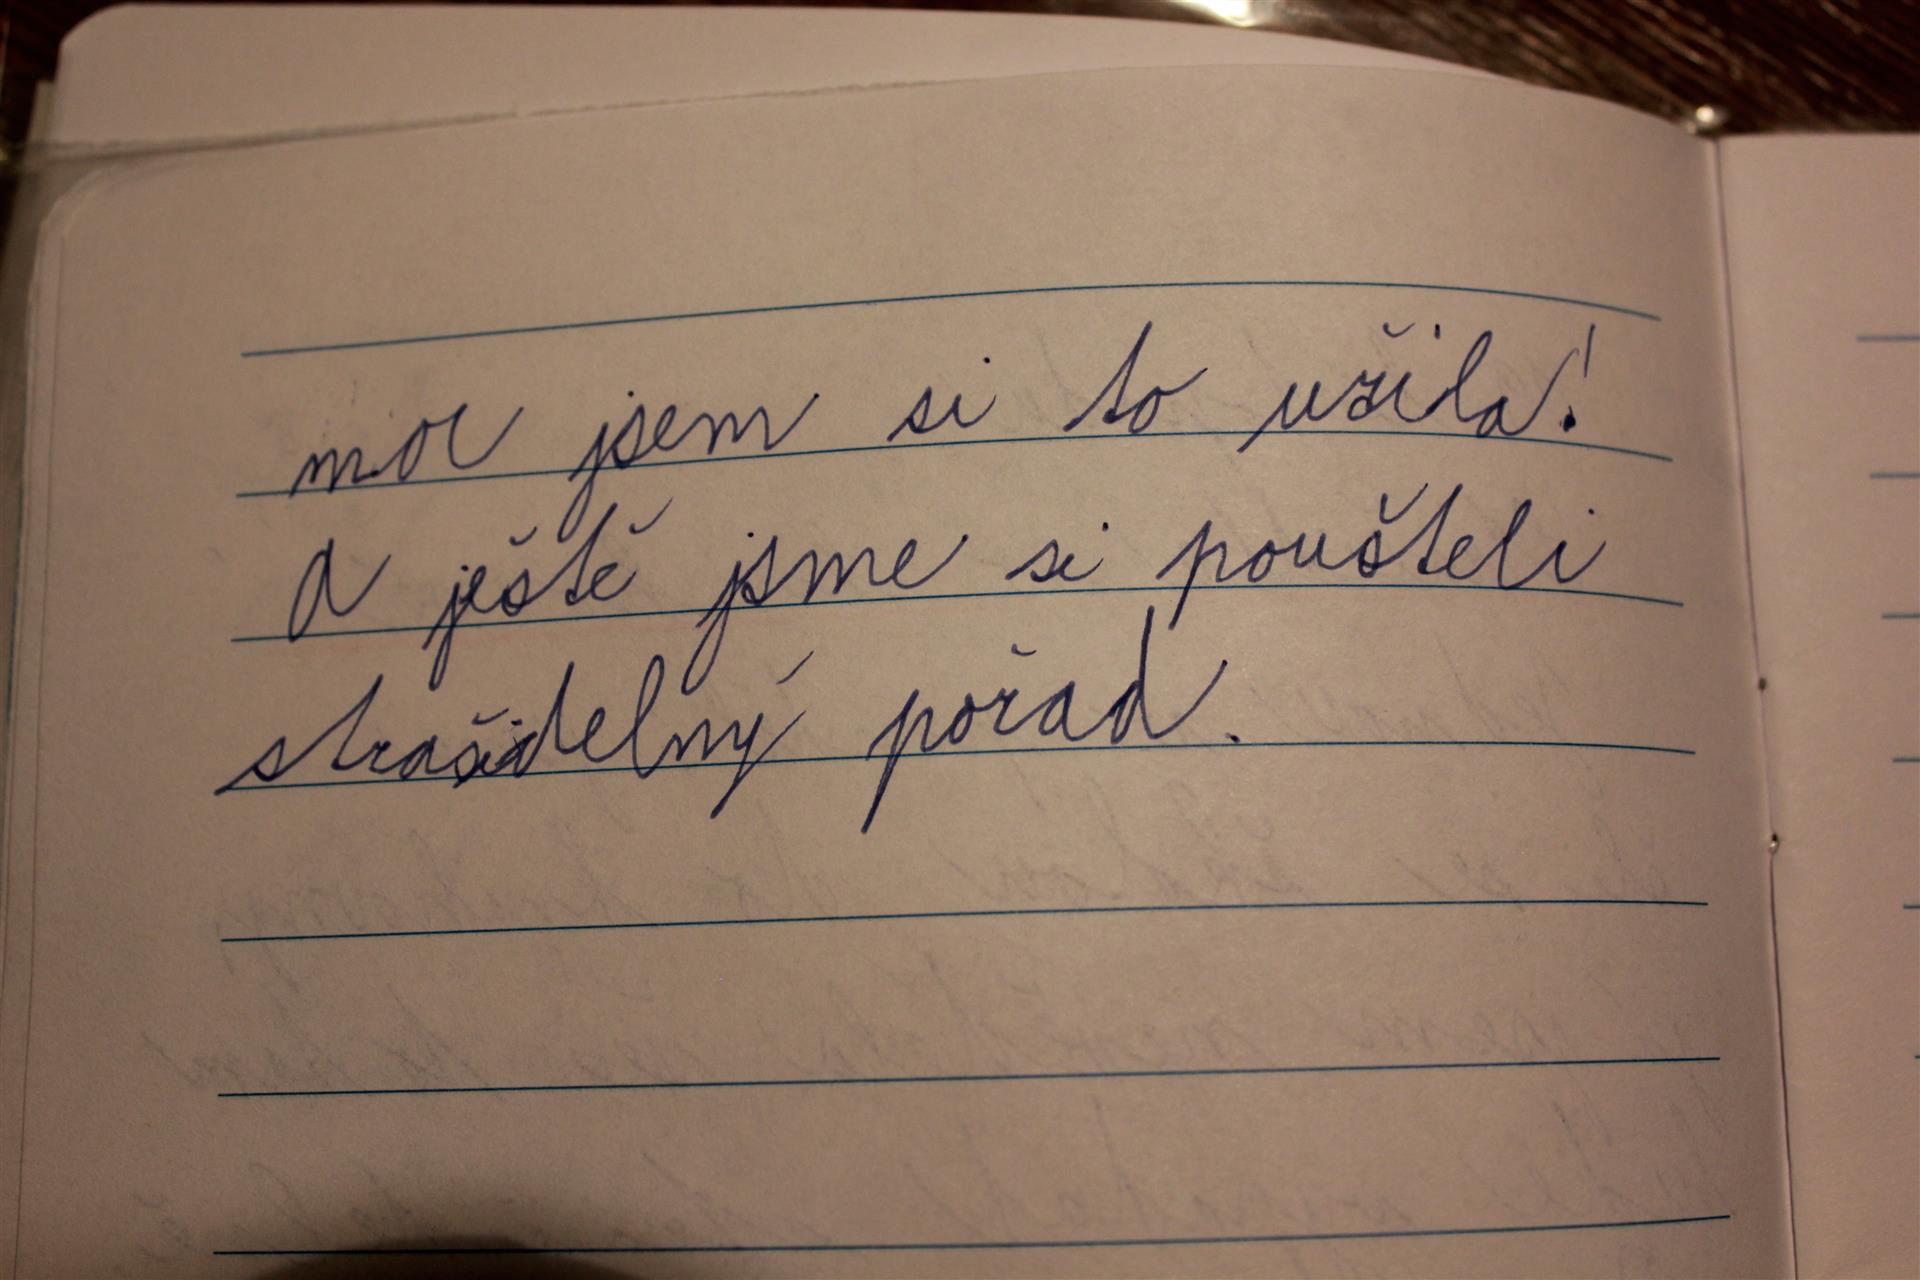 moc jsem si to užila!
A ještě jsme si poušteli
strašidelný pořad.